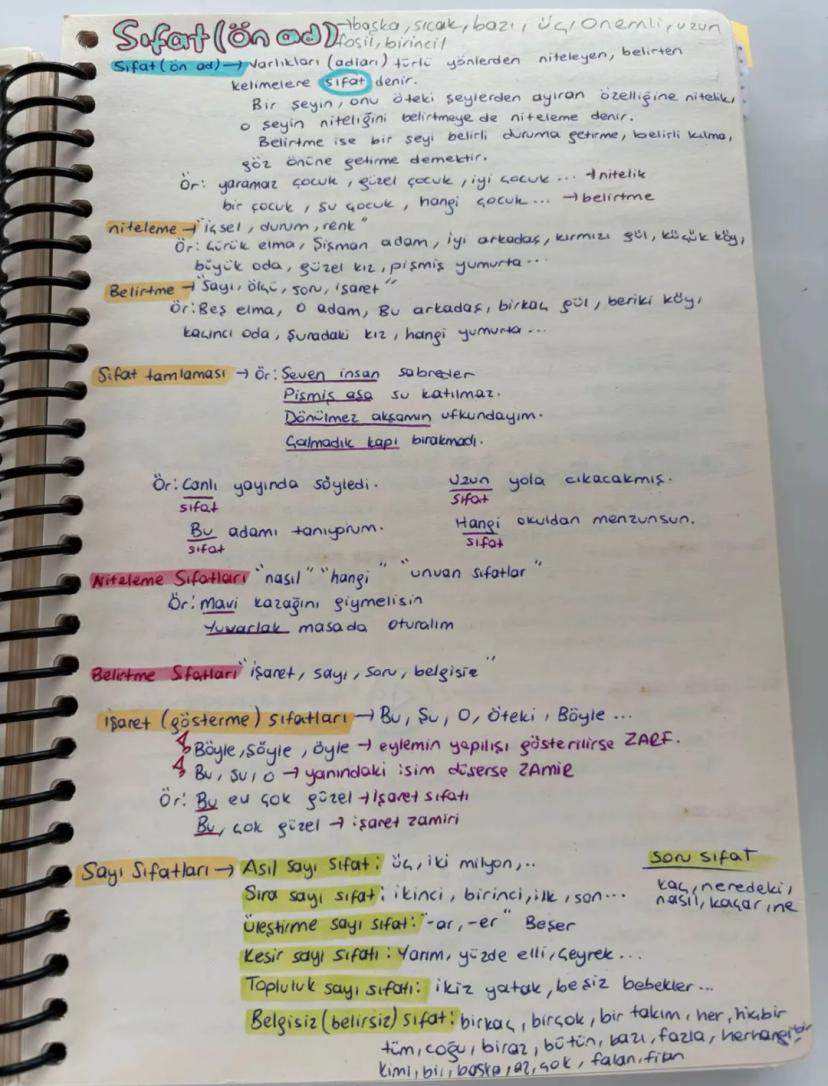 Sıfat (ön ad) → başka, sıcak, bazı, üç, önemli, uzun
fosil, birincil
Sıfat (ön ad) → Varlıkları (adları) türlü yönlerden niteleyen, belirten
kelimelere sıfat denir.
Bir şeyin, onu öteki şeylerden ayıran özelliğine nitelik,
o şeyin niteliğini belirtmeye de niteleme denir.
Belirtme ise bir şeyi belirli duruma getirme, belirli kılma,
göz önüne getirme demektir.
Ör: yaramaz çocuk, güzel çocuk, iyi çocuk ... → nitelik
bir çocuk, şu çocuk, hangi çocuk ... → belirtme
niteleme → "içsel, durum, renk"
Ör: Çürük elma, Şişman adam, iyi arkadaş, kırmızı gül, küçük köy,
büyük oda, güzel kız, pişmiş yumurta ...
Belirtme → "Sayı, ölçü, soru, işaret"
Ör: Beş elma, O adam, Bu arkadaş, birkaç gül, beriki köy,
kaçıncı oda, şuradaki kız, hangi yumurta ...
Sıfat tamlaması → Ör: Seven insan sabreder
Pişmiş aşa su katılmaz.
Dönülmez akşamın ufkundayım.
Çalmadık kapı bırakmadı.
Ör: Canlı yayında söyledi. Uzun yola çıkacakmış.
sıfat sıfat
Bu adamı tanıyorum. Hangi okuldan menzunsun.
sıfat sıfat
Niteleme Sıfatları "nasıl" "hangi" "unvan sıfatlar"
Ör: Mavi kazağını giymelisin
Yuvarlak masada oturalım
Belirtme Sıfatları "işaret, sayı, soru, belgisiz"
işaret (gösterme) sıfatları → Bu, Şu, O, öteki, Böyle ...
Böyle, şöyle, öyle → eylemin yapılışı gösterilirse ZARF.
Bu, şu, o → yanındaki isim düşerse ZAMİR
Ör: Bu ev çok güzel → işaret sıfatı
Bu, çok güzel → işaret zamiri
Sayı Sıfatları → Asıl sayı sıfat: üç, iki milyon, ..
Sıra sayı sıfat: ikinci, birinci, ilk, son ...
Üleştirme sayı sıfat: "-ar, -er" Beşer
Kesir sayı sıfatı: Yarım, yüzde elli, Çeyrek ...
Topluluk sayı sıfatı: ikiz yatak, beşiz bebekler ...
Belgisiz (belirsiz) sıfat: birkaç, birçok, bir takım, her, hiçbir
tüm, çoğu, biraz, bütün, bazı, fazla, herhangi bir
kimi, bir, başka, az, çok, falan, filan
Soru sıfat
kaç, neredeki,
nasıl, kaçar, ne